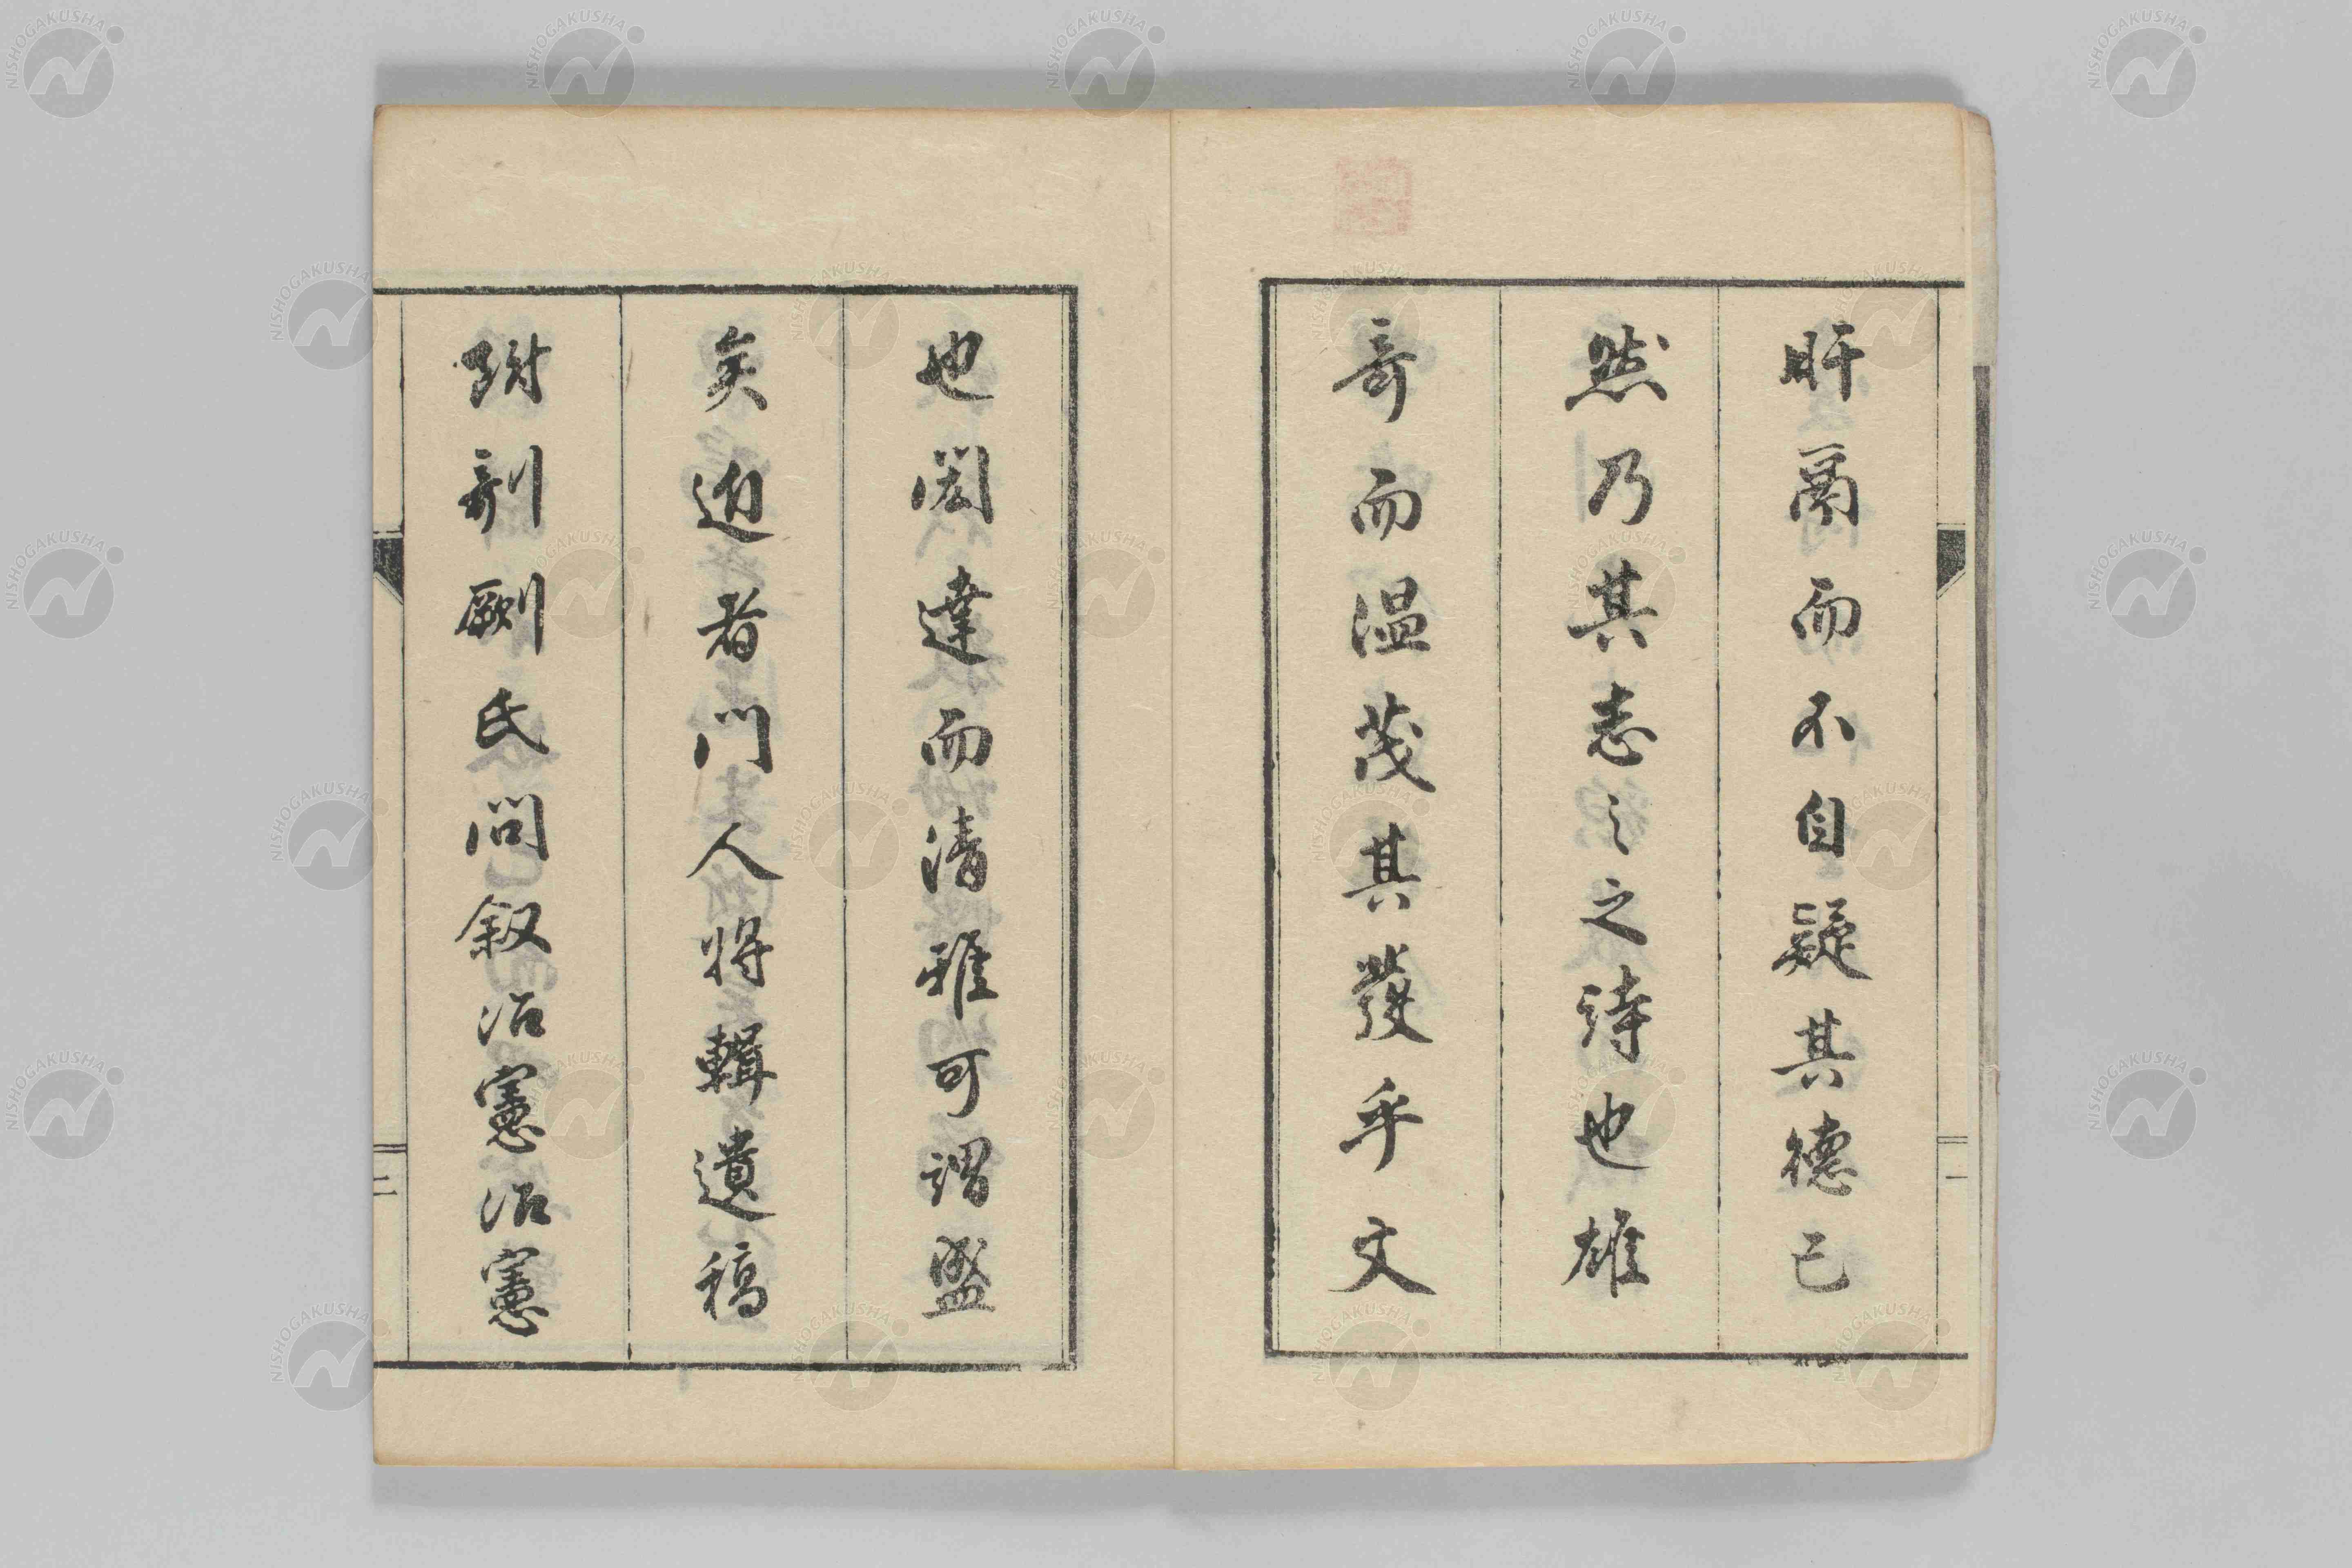 一
肝鬲而不自疑其德已
然乃其志之之詩也雄
奇而温茂其發乎文
也閎達而清雅可謂盛
矣迺者門人將輯遺稿
附剞劂氏問叙治憲治憲
二
NISHOGAKUSHA